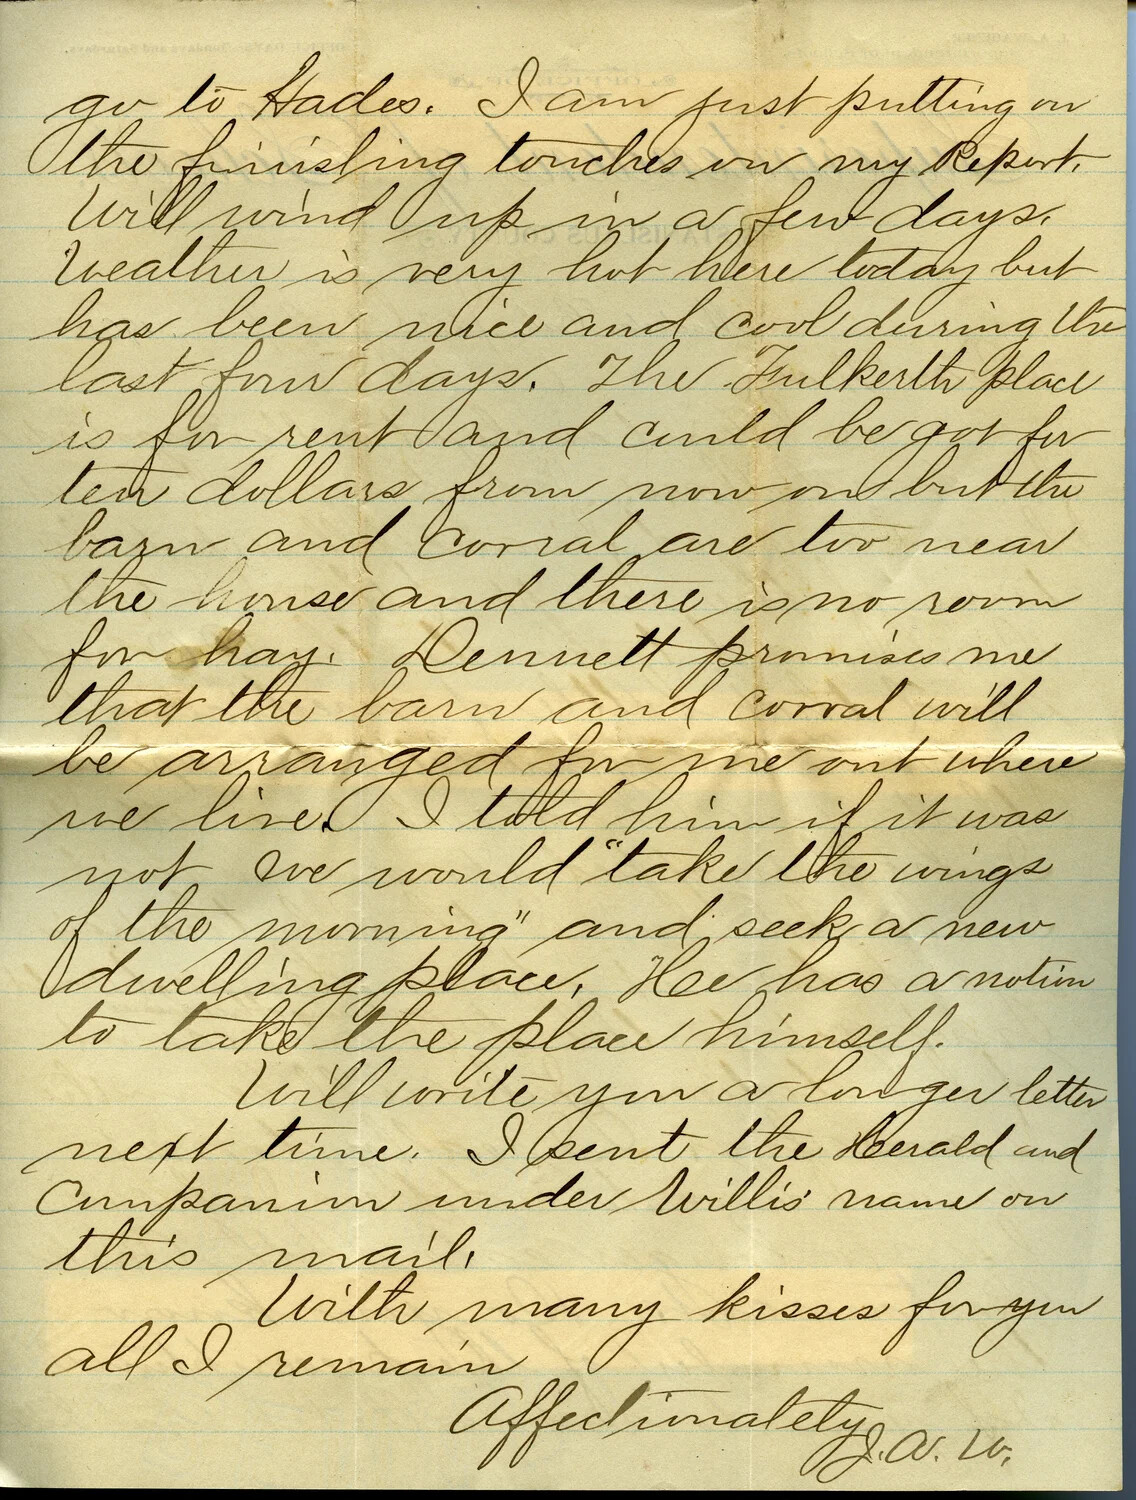 go to Hades. I am just putting on
the finishing touches on my Report.
Will wind up in a few days.
Weather is very hot here today but
has been nice and cool during the
last four days. The Fulkerth place
is for rent and could be got for
ten dollars from now on but the
barn and corral are too near
the house and there is no room
for hay. Dennett promises me
that the barn and corral will
be arranged for me out where
we live. I told him if it was
not we would "take the wings
of the morning" and seek a new
dwelling place. He has a notion
to take the place himself.
Will write you a longer letter
next time. I sent the Herald and
Companion under Willis' name on
this mail.
With many kisses for you
all I remain
Affectionately
J. A. W.